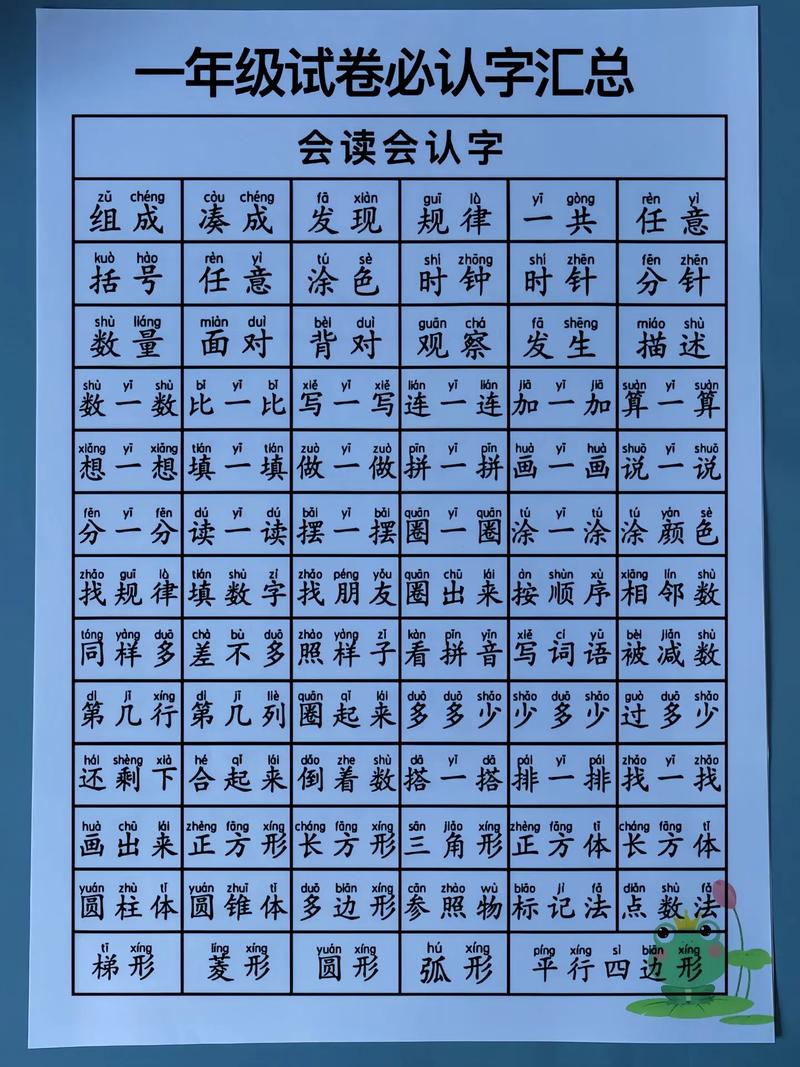 一年级试卷必认字汇总
会读会认字
zǔ chéng còu chéng fā xiàn guī lǜ yī gòng rèn yì
组成 凑成 发现 规律 一共 任意
kuò hào rèn yì tú sè shí zhōng shí zhēn fēn zhēn
括号 任意 涂色 时钟 时针 分针
shù liáng miàn duì bèi duì guān chá fā shēng miáo shù
数量 面对 背对 观察 发生 描述
shù yī shù bǐ yī bǐ xiě yī xiě lián yī lián jiā yī jiā suàn yī suàn
数一数 比一比 写一写 连一连 加一加 算一算
xiǎng yī xiǎng tián yī tián zuò yī zuò pīn yī pīn huà yī huà shuō yī shuō
想一想 填一填 做一做 拼一拼 画一画 说一说
fēn yī fēn dú yī dú bǎi yī bǎi quān yī quān tú yī tú tú yán sè
分一分 读一读 摆一摆 圈一圈 涂一涂 涂颜色
zhǎo guī lǜ tián shù zì zhǎo péng yǒu quān chū lái àn shùn xù xiāng lín shù
找规律 填数字 找朋友 圈出来 按顺序 相邻数
tóng yàng duō chà bù duō zhào yàng zǐ kàn pīn yīn xiě cí yǔ bèi jiǎn shù
同样多 差不多 照样子 看拼音 写词语 被减数
dì jǐ xíng dì jǐ liè quān qǐ lái duō duō shǎo shǎo duō shǎo guò duō shǎo
第几行 第几列 圈起来 多多少 少多少 过多少
hái shèng xià hé qǐ lái dǎo zhe shù dā yī dā pái yī pái zhǎo yī zhǎo
还剩下 合起来 倒着数 搭一搭 排一排 找一找
huà chū lái zhèng fāng xíng cháng fāng xíng sān jiǎo xíng zhèng fāng tǐ cháng fāng tǐ
画出来 正方形 长方形 三角形 正方体 长方体
yuán zhù tǐ yuán zhuī tǐ duō biān xíng cān zhào wù biāo jì fǎ diǎn shù fǎ
圆柱体 圆锥体 多边形 参照物 标记法 点数法
tī xíng líng xíng yuán xíng hú xíng píng xíng sì biān xíng
梯形 菱形 圆形 弧形 平行四边形